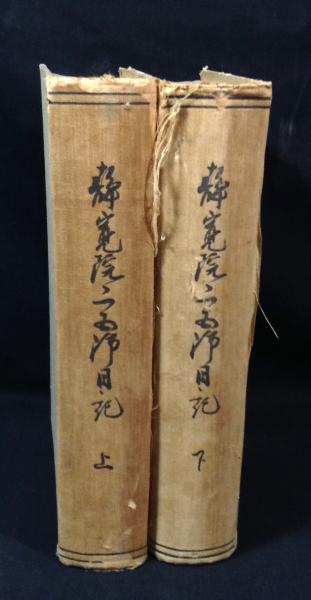 静寛院宮御日記 上
静寛院宮御日記 下